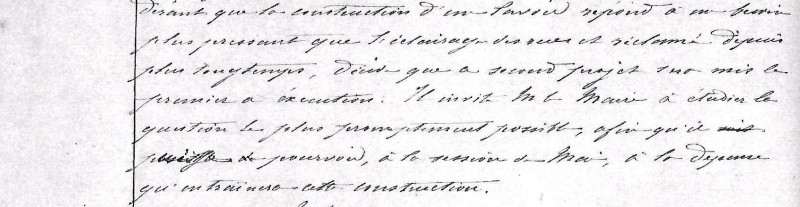 disant que la construction d'un lavoir répond à un besoin
plus pressant que l'éclairage des rues et réclamé depuis
plus longtemps, décide que ce second projet sera mis le
premier à éxécution. Il invite M. le Maire à étudier la
question le plus promptement possible, afin qu'il
puisse pourvoir, à la session de Mai, à la dépense
qu'entraînera cette construction.